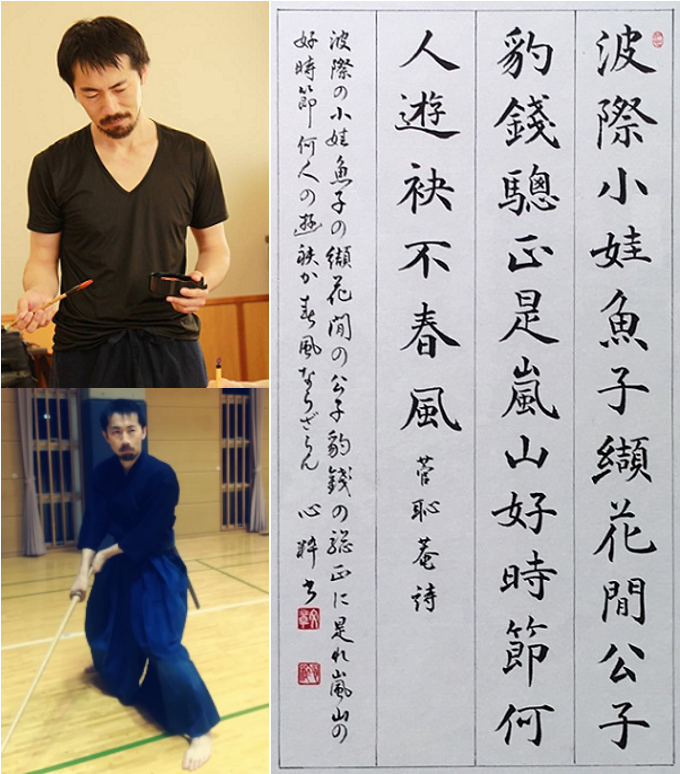 波際小娃魚子纈花閒公子
豹錢驄正是嵐山好時節何
人遊袂不春風 菅恥菴詩
波際の小娃魚子の纈花閒の公子豹錢の驄正に是れ嵐山の
好時節何人の遊袂か春風ならざらん 心粋書